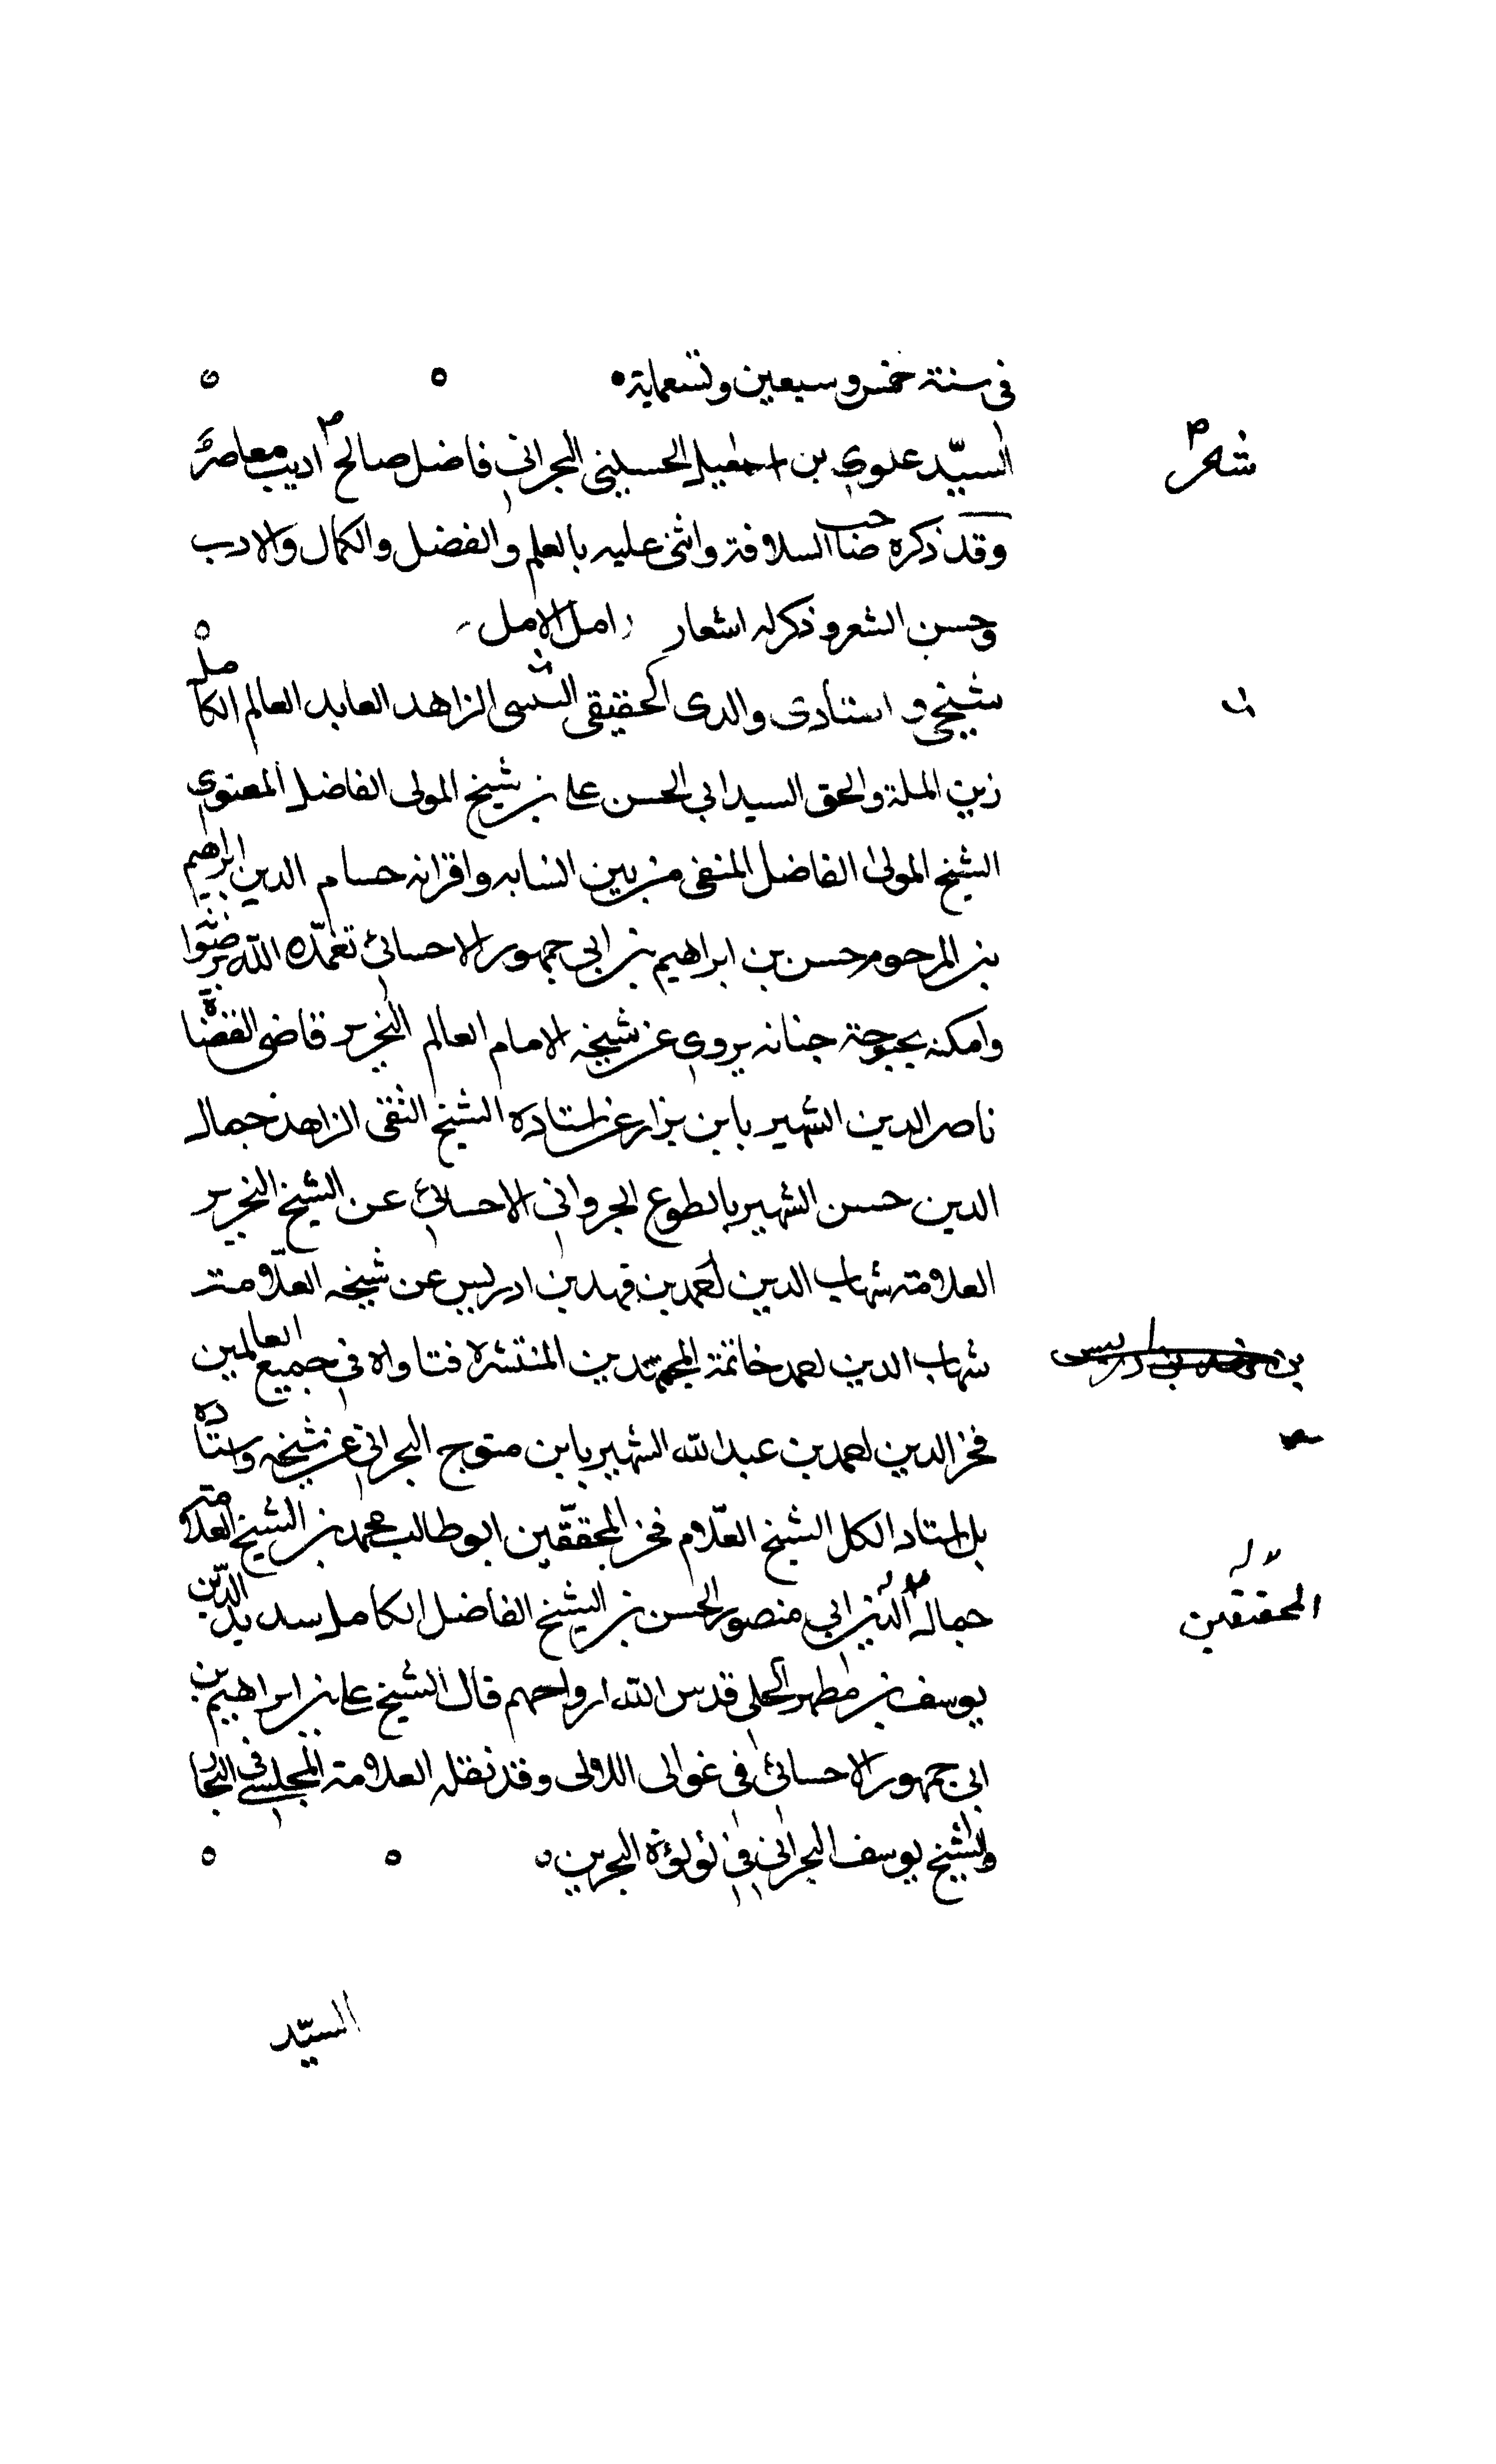 في سنة خمس وسبعين وتسعماية
السيّد علوي بن اسمعيل الحسيني البحراني فاضل صالح اديب معاصر
شاعر
وقد ذكره صاحب السلافة واثنى عليه بالعلم والفضل والكمال والادب
وحسن الشعر وذكر له اشعار امل الامل
شيخي و استادى والدى الحقيقي الزاهد العابد العالم الكامل
زين الملة والحق السيد ابي الحسن على بن شيخ المولى الفاضل المعنوي
الشيخ المولى الفاضل من بين انسابه واقرانه حسام الدين ابراهيم
بن المرحوم حسن بن ابراهيم بن ابي جمهور الاحسائي تغمّده الله برضوا
وامكنه بحبوحة جنانه يروي عن شيخه الامام العالم النحرير قاضى القضاة
ناصر الدين الشهير بابن نزار عن استاده الشيخ التقى الزاهد جمال
الدين حسن الشهير بالمطوع الجرواني الاحسائي عن الشيخ النحرير
العلامة شهاب الدين احمد بن فهد بن ادريس عن شيخه العلّامة
شهاب الدين احمد خاتمة المجتهدين المنتشرة فتاواه في جميع العالمين
فخر الدين احمد بن عبد الله الشهير بابن متوج البحراني عن شيخه واستاده
بل استاد الكل الشيخ العلّام فخر المحققين ابو طالب محمد بن الشيخ العلامة
جمال الدين ابي منصور الحسن بن الشيخ الفاضل الكامل سديد الدين
المحققين
يوسف بن مطهر الحلي قدس الله ارواحهم قال الشيخ على بن ابراهيم بن
ابي جمهور الاحسائي في غوالى اللالى وقد نقله العلامة المجلسي في البحار
والشيخ يوسف البحراني في لؤلؤة البحرين
السيّد